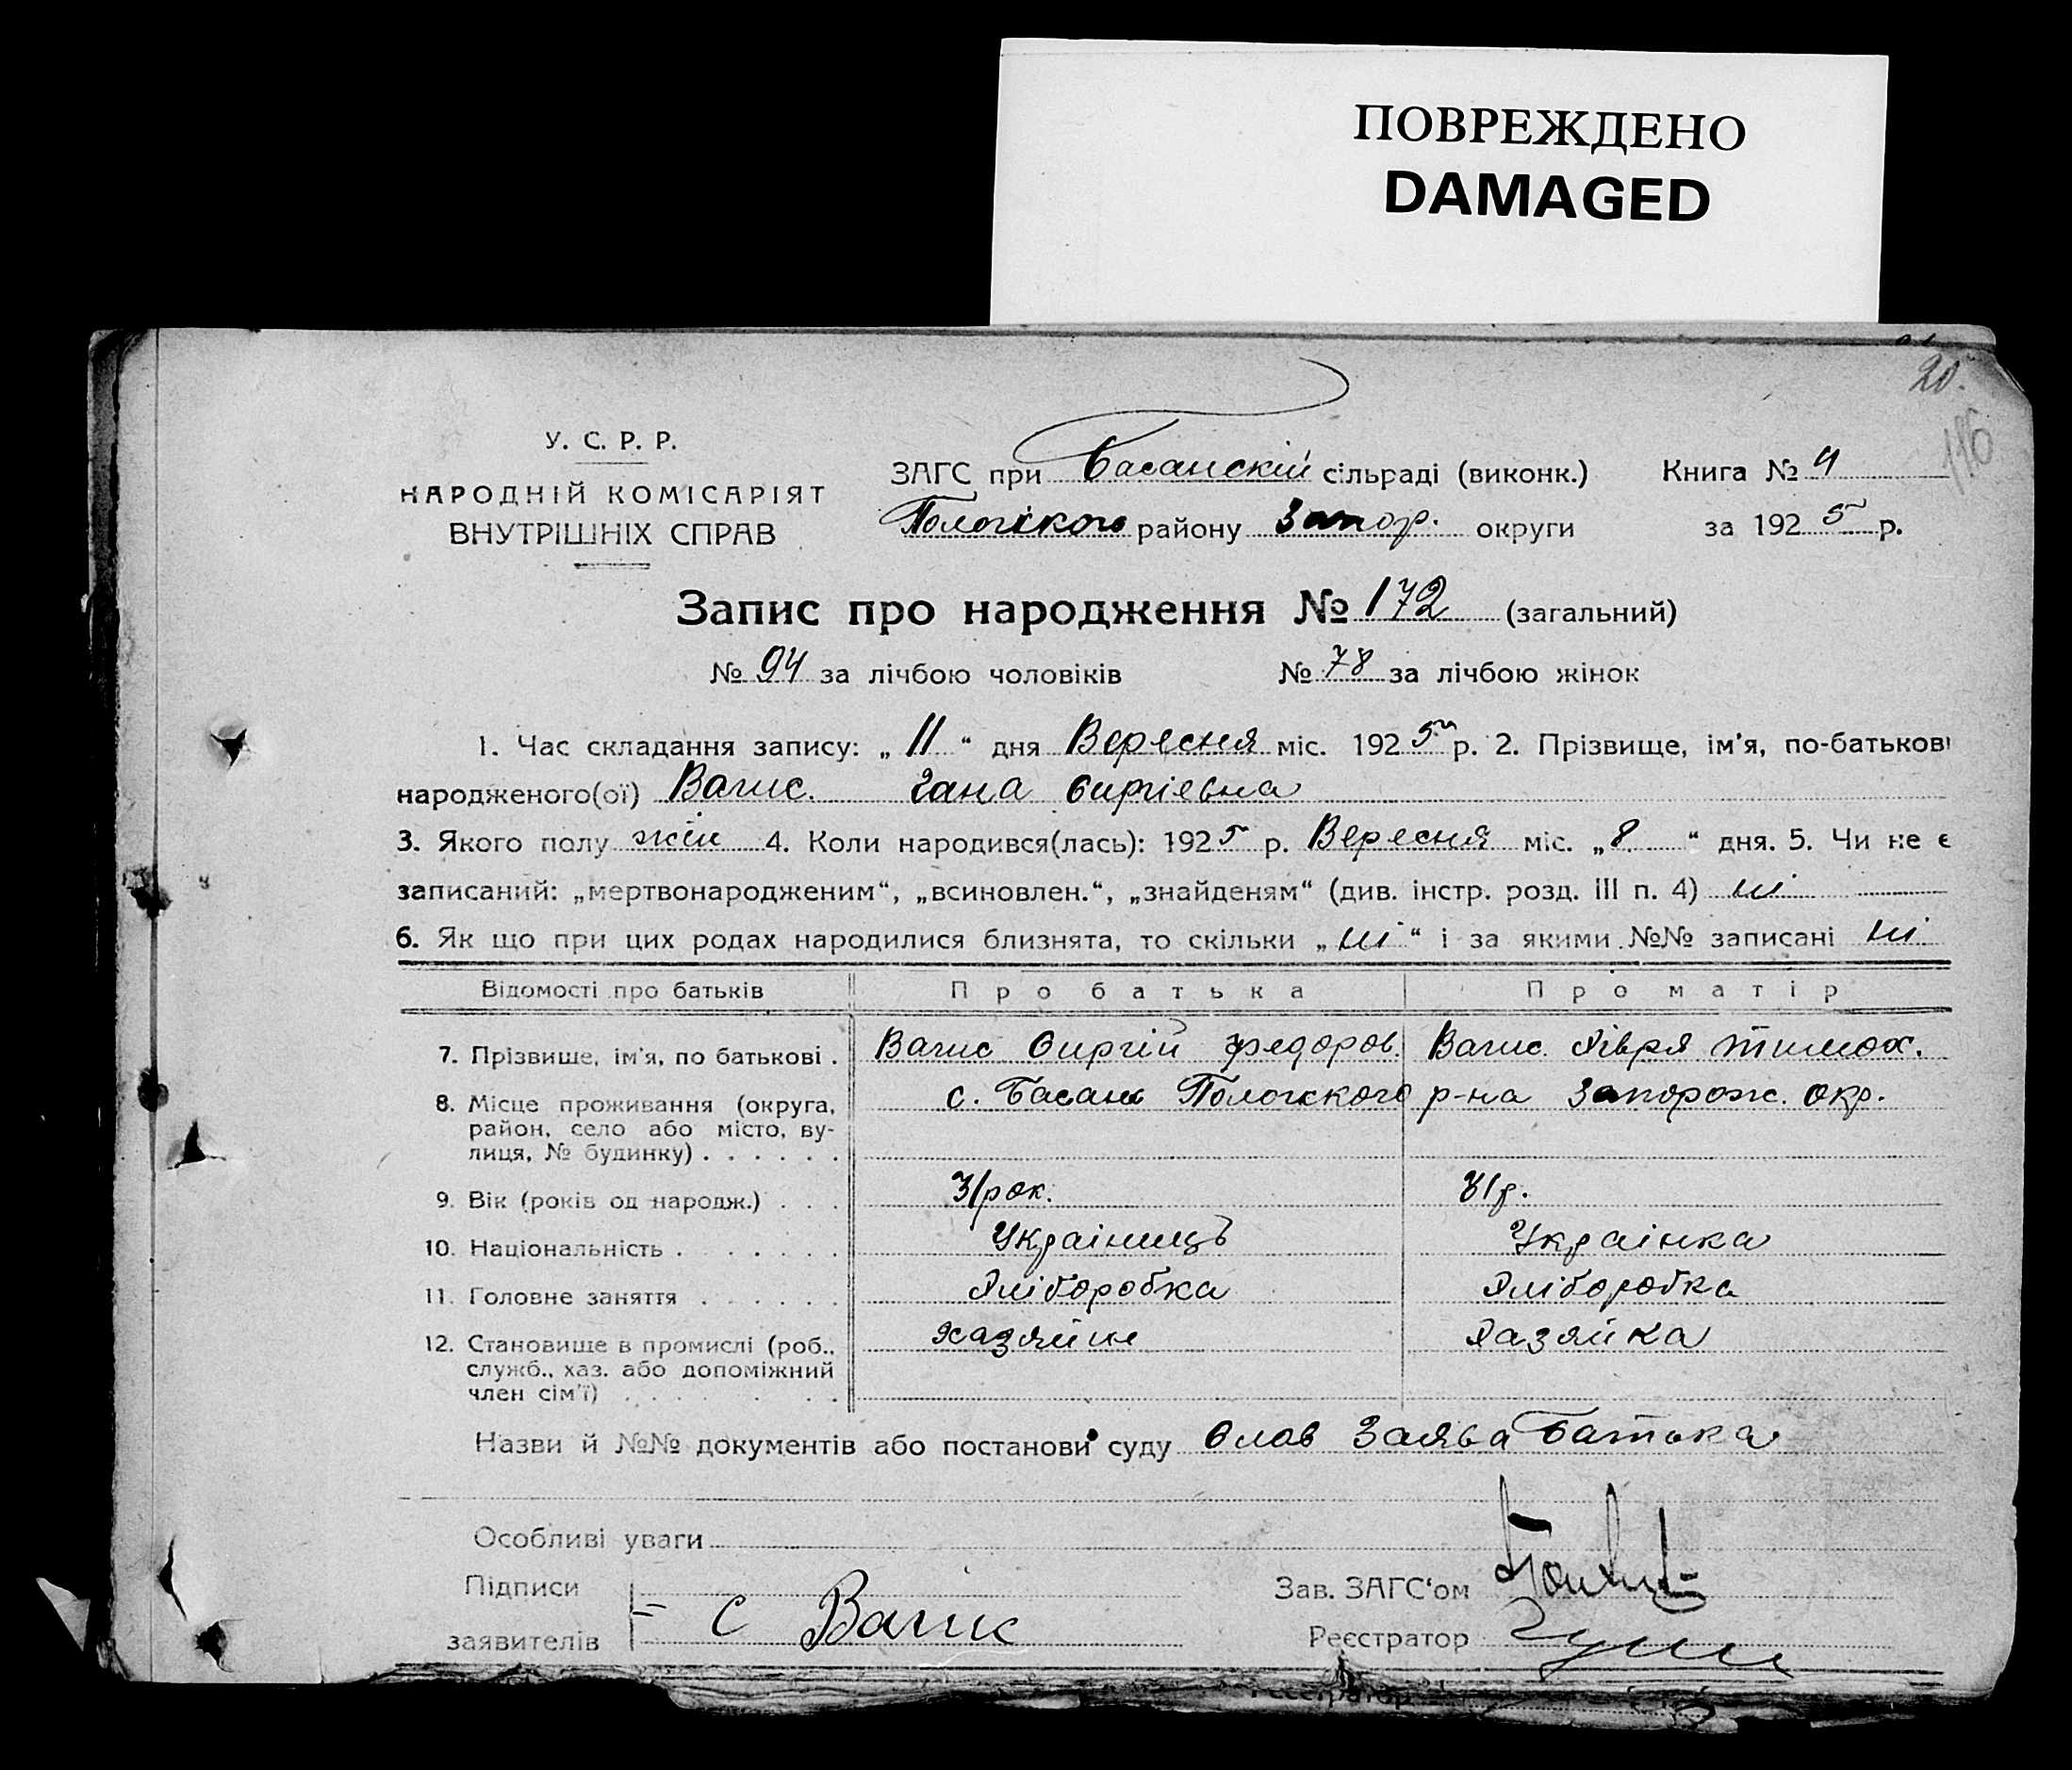 ПОВРЕЖДЕНО
DAMAGED
20.
116
У. С. Р. Р.
НАРОДНІЙ КОМІСАРІЯТ
ВНУТРІШНІХ СПРАВ
ЗАГС при Басанскій сільраді (виконк.) Книга № 4
Пологского району Запор. округи за 1925 р.
Запис про народження № 172 (загальний)
№ 94 за лічбою чоловіків № 78 за лічбою жінок
1. Час складання запису: „ 11 “ дня Вересня міс. 1925 р. 2. Прізвище, ім'я, по-батькові
народженого(ої) Вагис. Гана Сиргіевна
3. Якого полу жін 4. Коли народився(лась): 1925 р. Вересня міс. „ 8 “ дня. 5. Чи не є
записаний: „мертвонародженим“, „всиновлен.“, „знайденям“ (див. інстр. розд. III п. 4) ні
6. Як що при цих родах народилися близнята, то скільки „ ні “ і за якими №№ записані ні
Відомості про батьків Про батька Про матір
7. Прізвище, ім'я, по батькові . Вагис Сиргій Федоров. Вагис Тимох.
8. Місце проживання (округа, с. Басань Пологского р-на Запорож. окр.
район, село або місто, ву-
лиця, № будинку) . . . . . .
9. Вік (років од народж.) . . . 31 рок. 31 р.
10. Національність . . . . . . . Українець Українка
11. Головне заняття . . . . . . Хліборобка Хліборобка
12. Становище в промислі (роб., хазяйин Хазяйка
служб., хаз. або допоміжний
член сім'ї) . . . . . . .
Назви й №№ документів або постанови суду Слов Заява Батька
Особливі уваги
Підписи
заявителів С Вагис
Зав. ЗАГС'ом
Реєстратор
Реєстратор